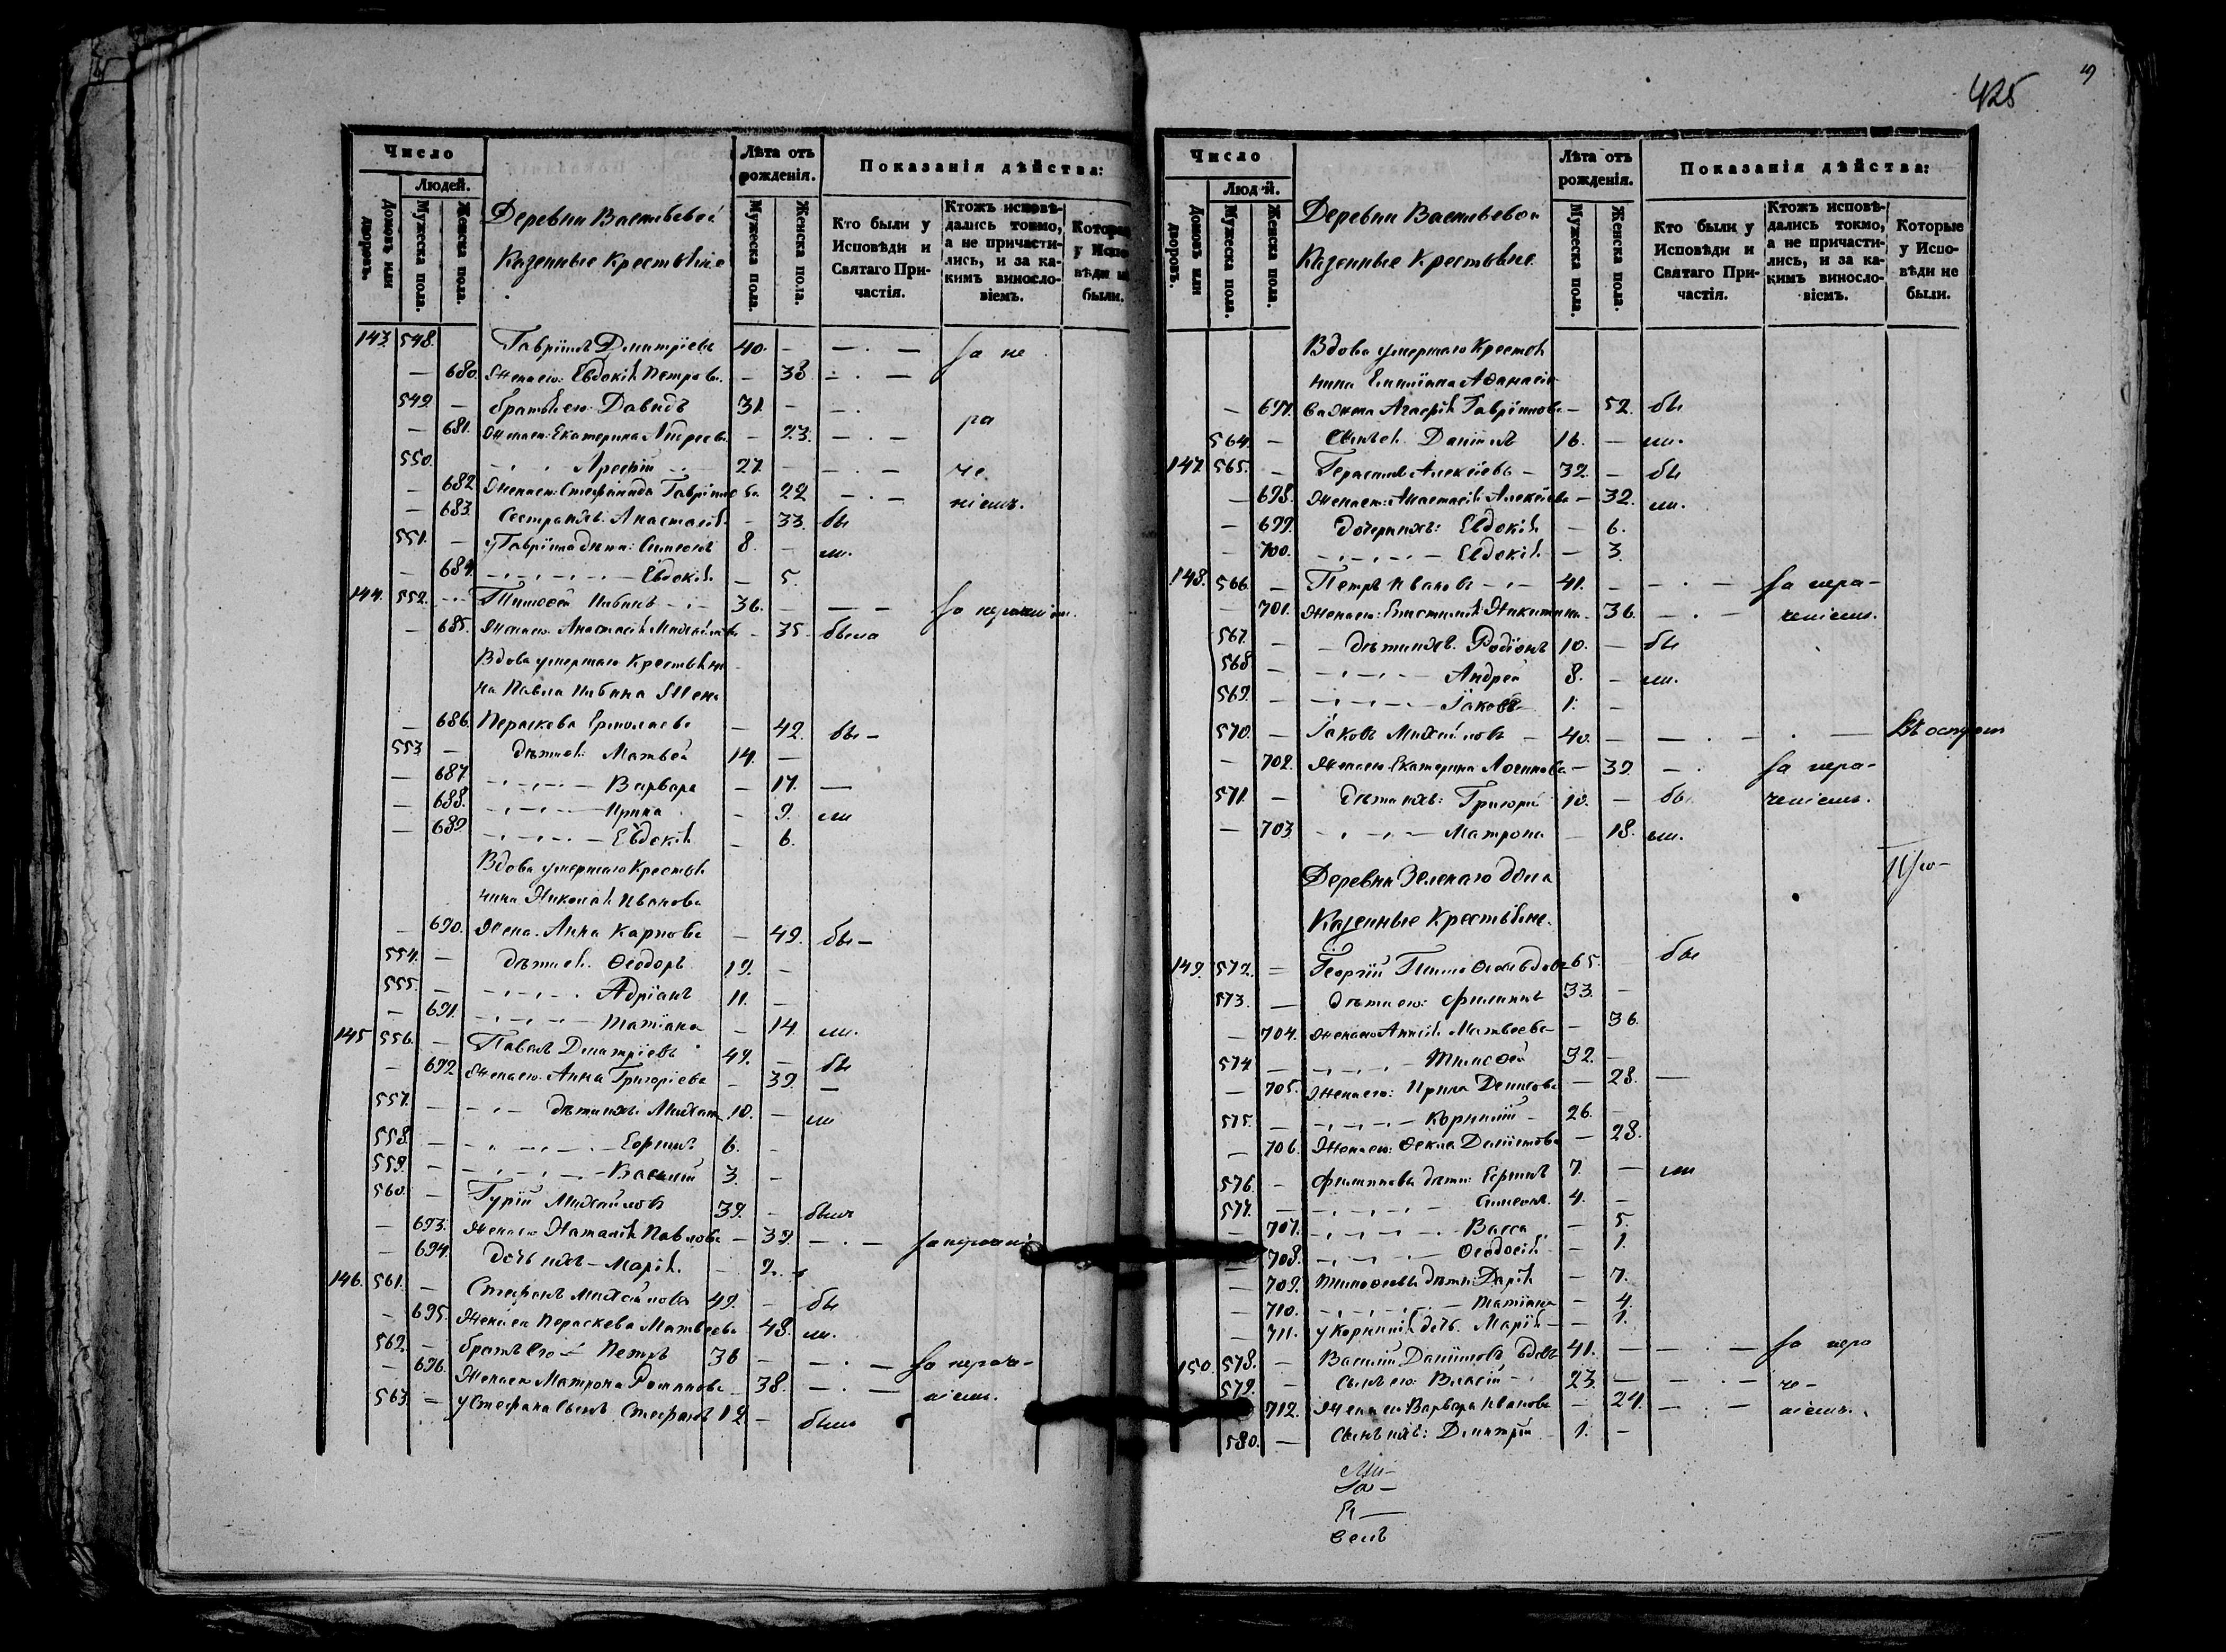 Число
Людей.
Домовъ или дворовъ.
Мужеска пола.
Женска пола.
Деревни Васильевой
Казенные Крестьяне
Лѣта отъ рожденія.
Мужеска пола.
Женска пола.
Показанія дѣйства:
Кто были у Исповѣди и Святаго Причастія.
Ктожъ исповѣдались токмо, а не причастились, и за какимъ винословіемъ.
у Испо-
были.
143. 548. Гавріилъ Димитріевъ 40. — — . — За не
— 680. Жена его: Евдокія Петрова. — 38. — . —
549. — братья его: Давидъ 31. — — . ра
— 681. Жена его: Екатерина Андреева — 23. — . —
550. — Арефій 27. — — . — че
— 682. Жена его: Стефанида Гаврилова 22 — . — ніемъ.
— 683. Сестра ихъ: Анастасія — 33. бы
551. — у Гавріила дѣти: Симеонъ 8. — ли.
— 684. — Евдокія — 5.
144. 552. Тимофей 36. — — —
— 685. Жена его: Анастасія Михайлова — 35. была
Вдова умершаго Крестьяни
на Павла Жена
— 686. Параскева Ермолаева — 42. бы —
553 — дѣти ея: Матвей 14. —
— 687. — Варвара — 17. —
— 688. — Ирина — 9. ли
— 689. — Евдокія — 6.
Вдова умершаго Крестья
нина Николая Иванова
— 690. Жена. Анна Карпова — 49. бы —
554. — дѣти ея. Ѳеодоръ 19. —
555. — Адріанъ 11. —
— 691. — Татіана — 14. ли.
145 556. — Павелъ Димитріевъ 49. — бы
— 692 Жена его: Анна Григоріева — 39. —
557. — дѣти ихъ: Михаилъ 10. — ли
558. — 6. —
559. — Василій 3. —
560. — Гурій Михайловъ 39. — былъ
— 693. Жена его Наталія Павлова — 39. — . —
— 694. дочь ихъ — Марія. — 2. —
146. 561. — Стефанъ Михайловъ 49. — бы
— 695. Жена его Параскева Матвеева 48. ли.
562. — братъ его — Петръ 36 — — . — За нераче-
— 696. Жена его Матрона Романова 38. — . — ніемъ.
563. — у Стефана сынъ Стефанъ 12 — былъ
425
Число
Людей.
Домовъ или дворовъ.
Мужеска пола.
Женска пола.
Деревни Васильевой
Казенные Крестьяне
Лѣта отъ рожденія.
Мужеска пола.
Женска пола.
Показанія дѣйства:
Кто были у Исповѣди и Святаго Причастія.
Ктожъ исповѣдались токмо, а не причастились, и за какимъ винословіемъ.
Которые у Исповѣди не были.
Вдова умершаго Крестья
нина Емиліана Аѳанасіе
— 697. ва жена Агафія Гавріилова — 52. бы
564. — сынъ ея Даніилъ 16. — ли.
147. 565. — Герасимъ Алексіевъ — 32. — бы
— 698. Жена его: Анастасія Алексіева — 32. ли.
— 699. дочери ихъ: Евдокія — 6.
— 700. — Евдокія — 3.
148. 566. — Петръ Ивановъ — 41. — — . — За нера-
— 701. Жена его: Никитина 36. — . — ченіемъ.
567. — дѣти ихъ: Родіонъ 10. — бы
568 — Андрей 8. — ли.
569. — Іаковъ 1. —
570. — Іаковъ Михайловъ — 40. — — . — . — Въ
— 702. Жена его: Екатерина Логинова — 39. — . За нера-
571. — дѣти ихъ: Григорій 10. — бы ченіемъ.
— 703. — Матрона — 18. ли.
Деревни Зеленаго дола
Казенные Крестьяне.
149. 572. — Георгій вдовъ 65. — бы
573. — дѣти его: Филиппъ 33. —
— 704. Жена его Матвеева — 36.
574 — Тимоѳей 32. —
— 705. Жена его: Ирина Денисова — 28. —
575. — Корнилій — 26. —
— 706. Жена его: Ѳекла Даніилова — 28.
576. — Филипповы дѣти: 7. — ли
577. — Симеонъ. 4. —
— 707. — Васса — 5.
— 708. — Ѳеодосія — 1.
— 709. Тимоѳеевы дѣти: Дарія — 7.
— 710. — Татіана — 4.
— 711. у Корнилія дочь. Марія — — 1.
150. 578. — Василій Даніиловъ вдовъ 41. — — . — За нера
579. — сынъ его: Власій — 23. — — . — че —
712. Жена его Варвара Иванова — 24. — . — ніемъ.
580. — сынъ ихъ: Димитрій 1. —